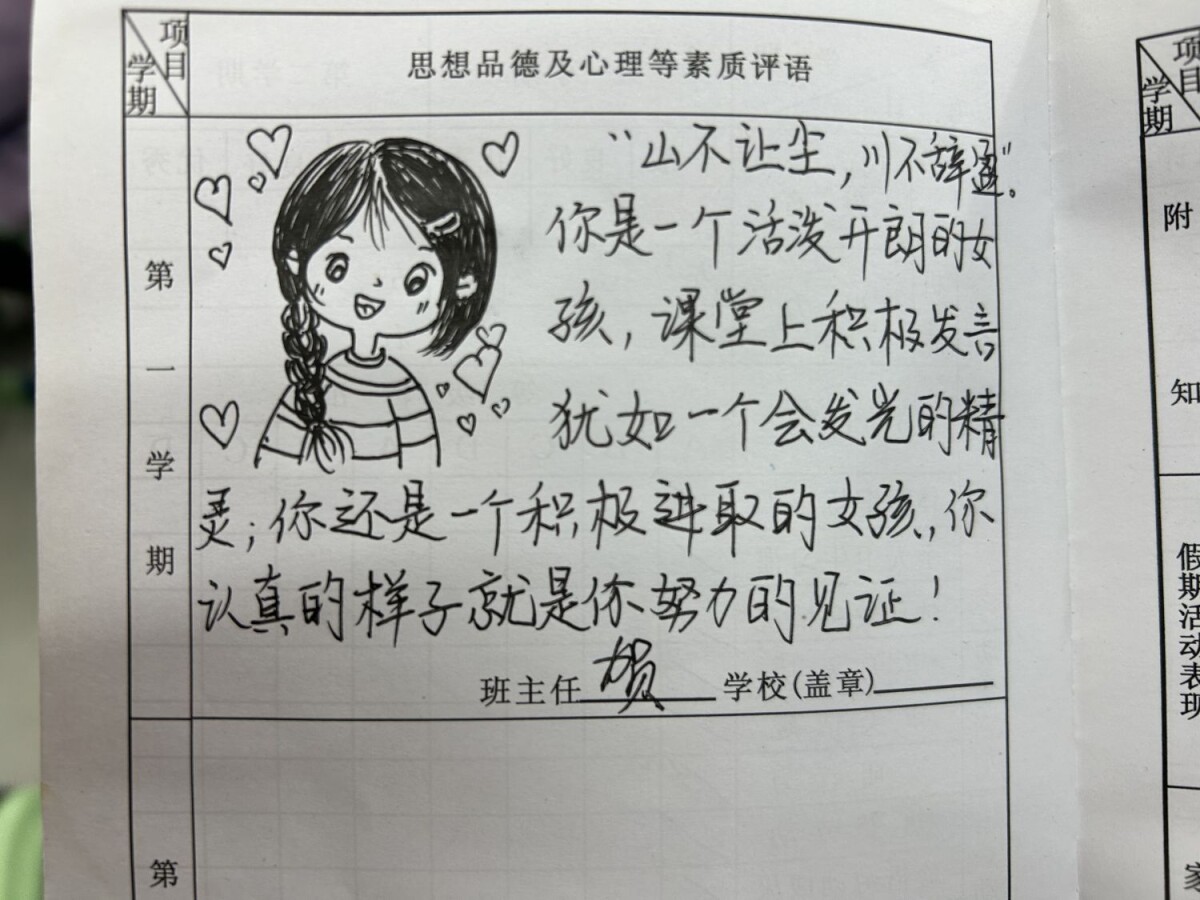 项目
学期
思想品德及心理等素质评语
第一学期
"山不让尘,川不辞盈"。
你是一个活泼开朗的女
孩,课堂上积极发言
犹如一个会发光的精
灵;你还是一个积极进取的女孩,你
认真的样子就是你努力的见证!
班主任 贺 学校(盖章)
第
项目
学期
附
知
假期活动表现
家